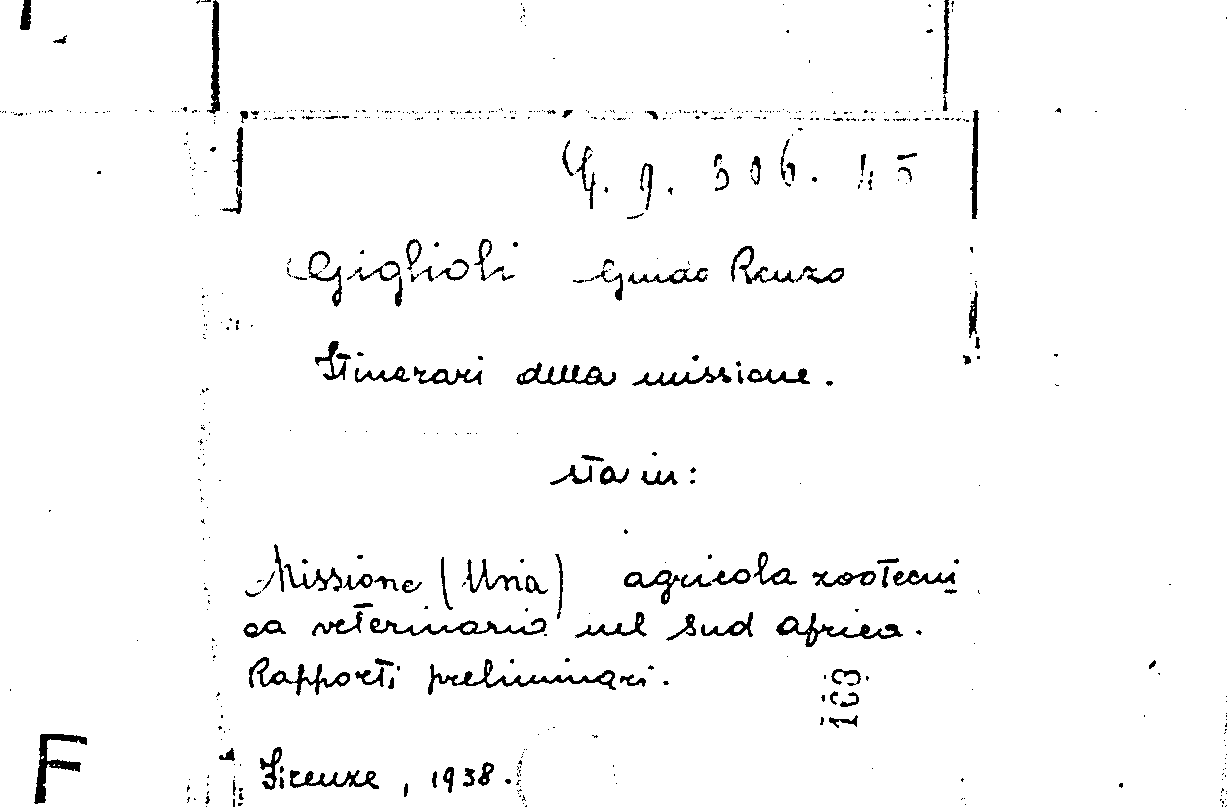 4. 9. 306. 45
Giglioli Guido Renzo
Itinerari della missione.
sta in:
Missione (Una) agricola zootecni
ca veterinaria nel sud africa.
Rapporti preliminari.
163
Firenze, 1938.
F